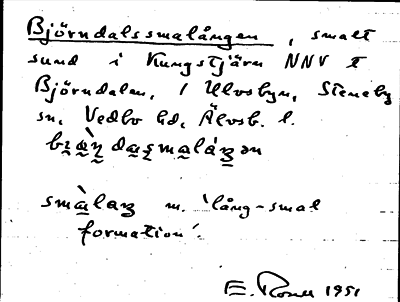 Björndalssmalången, smalt
sund i Kungstjärn NNV t
Björndalen, i Ulvsbyn, Steneby
sn, Vedbo hd, Älvsb. l.
smàlaŋ m. 'lång-smal
formation'.
E. 1951